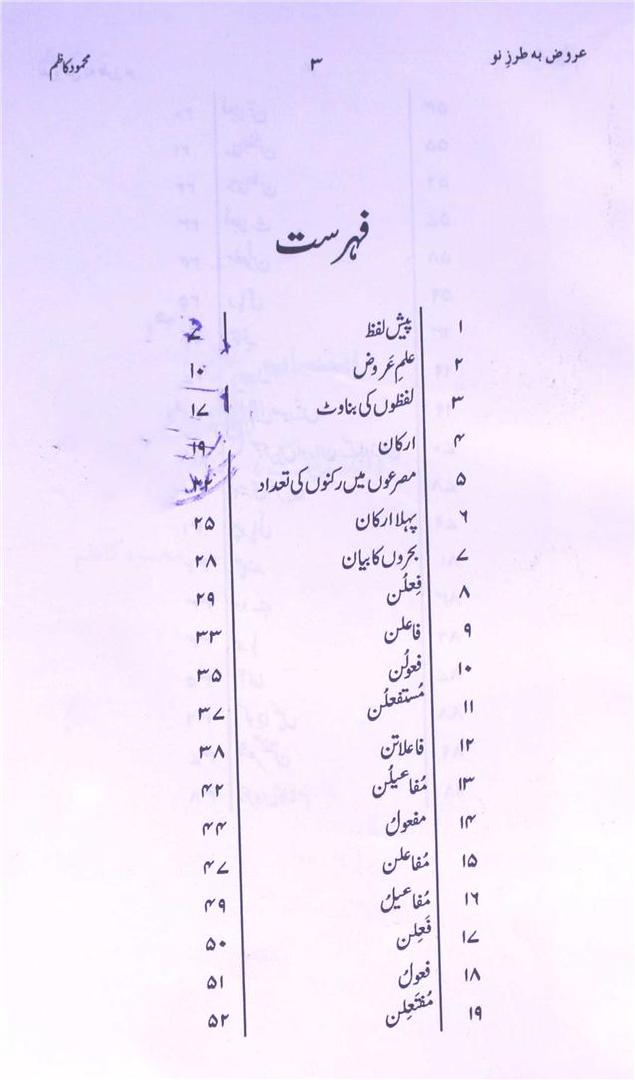 عروض بہ طرزِ نو ۳ محمود کاظم
فہرست
۱ پیش لفظ ۷
۲ علمِ عَروض ۱۰
۳ لفظوں کی بناوٹ ۱۷
۴ ارکان ۱۹
۵ مصرعوں میں رکنوں کی تعداد
۶ پہلا ارکان ۲۵
۷ بحروں کا بیان ۲۸
۸ فِعلُن ۲۹
۹ فاعلن ۳۳
۱۰ فعولُن ۳۵
۱۱ مُستفعلُن ۳۷
۱۲ فاعلاتن ۳۸
۱۳ مُفاعیلُن ۴۲
۱۴ مفعولُ ۴۴
۱۵ مُفاعلن ۴۷
۱۶ مُفاعیلُ ۴۹
۱۷ فَعِلن ۵۰
۱۸ فعولُ ۵۱
۱۹ مُفتَعِلن ۵۲